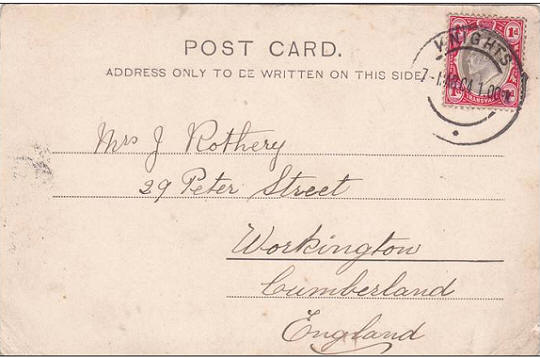 POST CARD.
ADDRESS ONLY TO BE WRITTEN ON THIS SIDE
KNIGHTS
1d 1d
TRANSVAAL
Mrs J Rothery
29 Peter Street
Workington
Cumberland
England